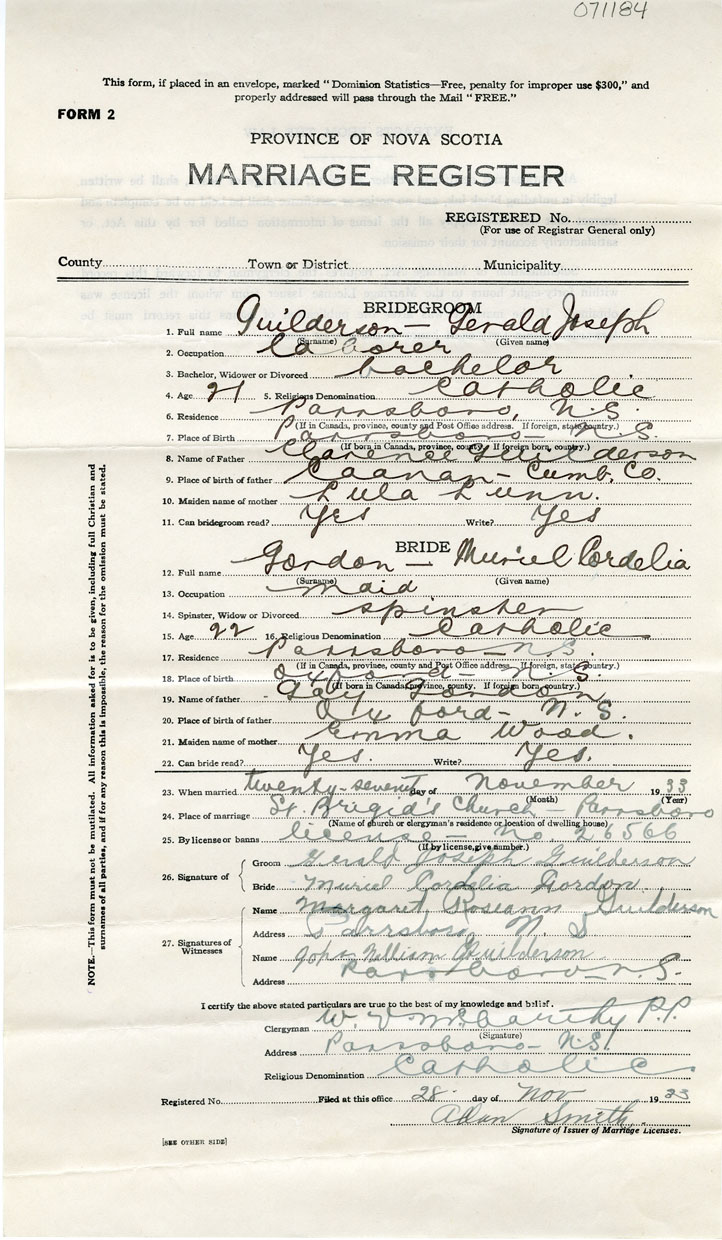 071184
This form, if placed in an envelope, marked "Dominion Statistics—Free, penalty for improper use $300," and
properly addressed will pass through the Mail "FREE."
FORM 2
PROVINCE OF NOVA SCOTIA
MARRIAGE REGISTER
REGISTERED No.
(For use of Registrar General only)
County Town or District Municipality
BRIDEGROOM
1. Full name Guilderson — Gerald Joseph
(Surname) (Given name)
2. Occupation Laborer
3. Bachelor, Widower or Divorced bachelor
4. Age 21 5. Religious Denomination Catholic
6. Residence Parrsboro, N.S.
(If in Canada, province, county and Post Office address. If foreign, state country.)
7. Place of Birth Parrsboro — N.S.
(If born in Canada, province, county. If foreign born, country.)
8. Name of Father Clarence Guilderson
9. Place of birth of father Caanan — Cumb. Co.
10. Maiden name of mother Lula Lunn.
11. Can bridegroom read? Yes Write? Yes
BRIDE
12. Full name Gordon — Muriel Cordelia
(Surname) (Given name)
13. Occupation maid
14. Spinster, Widow or Divorced spinster
15. Age 22 16. Religious Denomination Catholic
17. Residence Parrsboro — N.S.
(If in Canada, province, county and Post Office address. If foreign, state country.)
18. Place of birth Oxford — N.S.
(If born in Canada, province, county. If foreign born, country.)
19. Name of father Gordon
20. Place of birth of father Oxford — N.S.
21. Maiden name of mother Emma Wood.
22. Can bride read? Yes. Write? Yes.
23. When married twenty-seventh day of November 1933
(Month) (Year)
24. Place of marriage St. Brigid's Church — Parrsboro
(Name of church or clergyman's residence or location of dwelling house)
25. By license or banns license — No 26566
(If by license, give number.)
26. Signature of
Groom Gerald Joseph Guilderson
Bride Muriel Cordelia Gordon
27. Signatures of Witnesses
Name Margaret Roseann Guilderson
Address Parrsboro, N. S
Name John William Guilderson
Address Parrsboro — N.S.
I certify the above stated particulars are true to the best of my knowledge and belief.
Clergyman W. McCarthy P.P.
(Signature)
Address Parrsboro — N.S.
Religious Denomination Catholic
Registered No. Filed at this office 28 day of Nov 1933
Smith
Signature of Issuer of Marriage Licenses.
[SEE OTHER SIDE]
NOTE.—This form must not be mutilated. All information asked for is to be given, including full Christian and
surnames of all parties, and if for any reason this is impossible, the reason for the omission must be stated.